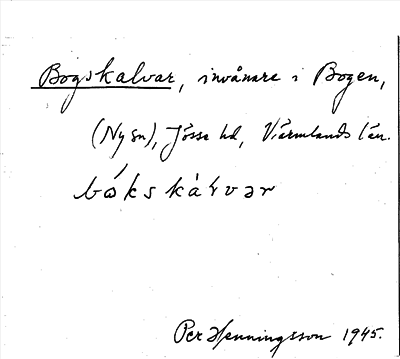 Bogskalvar, invånare i Bogen,
(Ny sn), Jösse hd, Värmlands län.
bókskàrvər
Per Henningsson 1945.